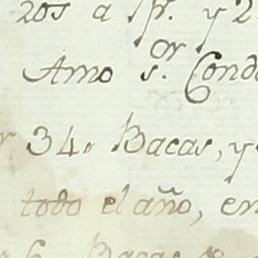 zos a pr. y 2
Amo s.or Cond
34,, Bacas, y
todo el año, en
Bacas de